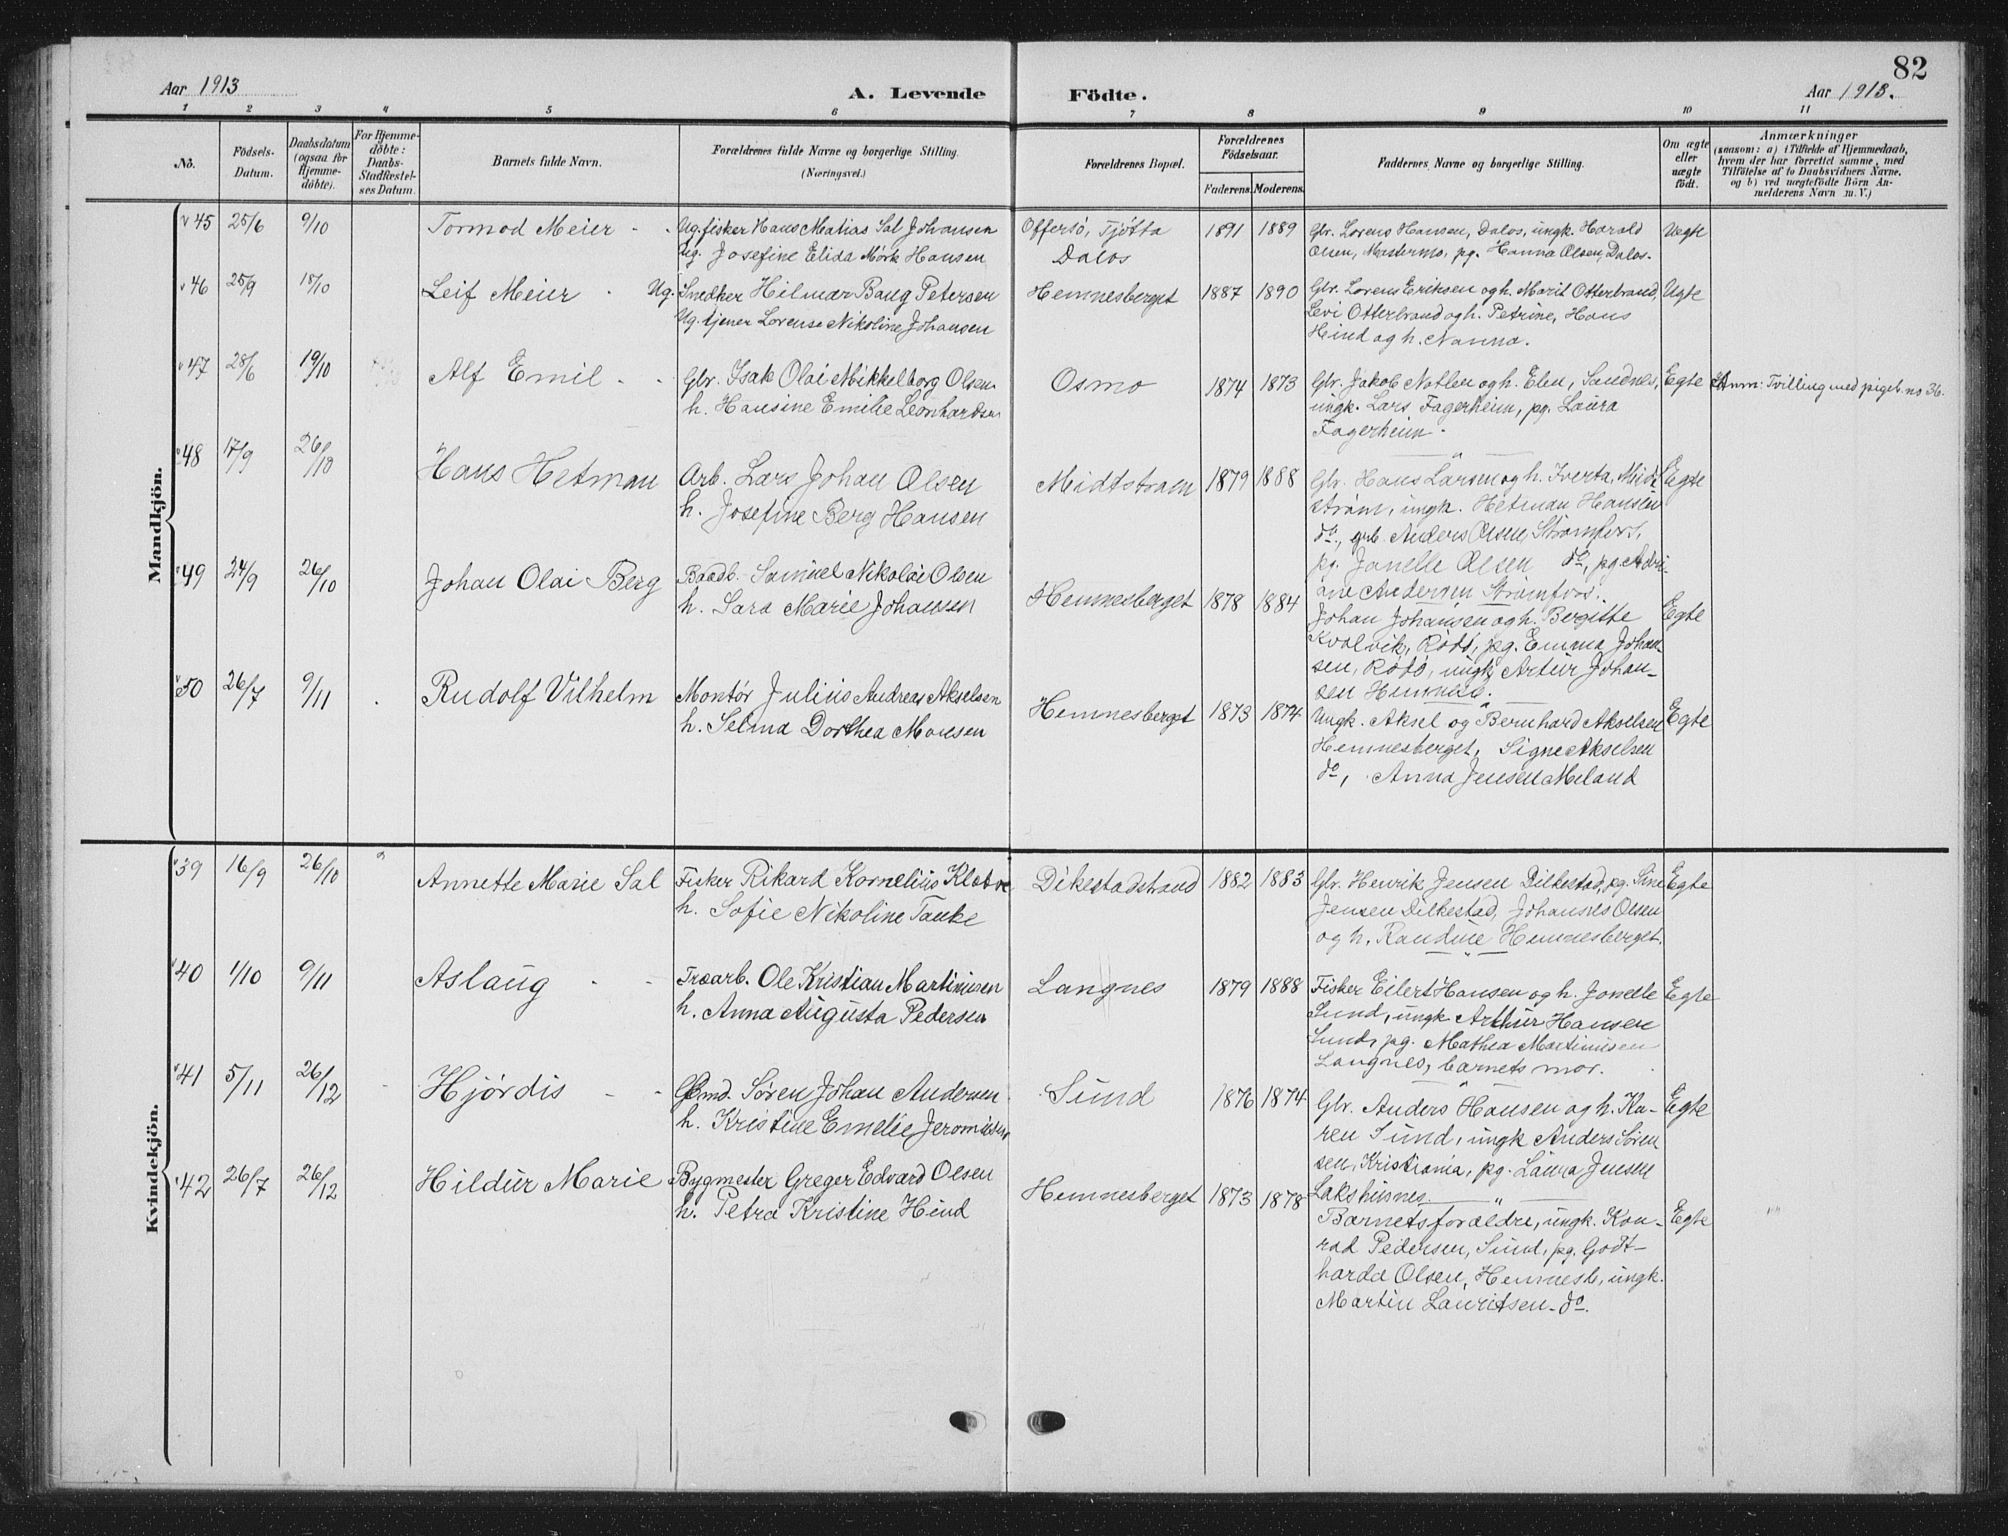 82
Aar 1913
A. Levende Födte.
Aar 1913.
1 2 3 4 5 6 7 8 9 10 11
No.
Födsels-Datum.
Daabsdatum (ogsaa for Hjemme-döbte).
For Hjemme-döbte: Daabs-Stadfæstel-ses Datum.
Barnets fulde Navn.
Forældrenes fulde Navne og borgerlige Stilling. (Næringsvei.)
Forældrenes Bopæl.
Forældrenes Födselsaar.
Faderens. Moderens.
Faddernes Navne og borgerlige Stilling.
Om ægte eller uægte födt.
Anmærkninger
(saasom: a) i Tilfælde af Hjemmedaab, hvem der har forrettet samme, med Tilföielse af to Daabsvidners Navne, og b) ved uægtefödte Börn An-melderens Navn m. V.)
Mandkjön.
45 25/6 9/10 Tormod Meier - - Ug. fisker Hans Matias Sal Johansen
Ug. Josefine Elida Mörk Hansen
Offersö, Tjötta
Dalos
1891 1889 Gbr. Lorens Hansen, Dalos, ungk. Harald
Olsen, Mastermo, pg. Hanna Olsen, Dalos.
Uegte
46 25/9 18/10 Leif Meier - Ug. Snedker Hilmar Baug Petersen
Ug. tjener Lorense Nikoline Johansen
Hemnesberget 1887 1890 Gbr. Lorens Eriksen og h. Marit Otterbrand,
Levi Otterbrand og h. Petrine, Hans
Hind og h. Nanna.
Ugte
47 28/6 19/10 Alf Emil - - Gbr. Isak Olai Mikkelborg Olsen
h. Hansine Emilie Leonhardsen
Osmo 1874 1873 Gbr. Jakob Natlen og h. Elen, Sandnes,
ungk. Lars Fagerheim, pg. Laura
Fagerheim.
Egte Anm: Tvilling med pigeb. no 36.
48 17/9 26/10 Hans Hetman Arb. Lars Johan Olsen
h. Josefine Berg Hansen
Midtstrøm 1879 1888 Gbr. Hans Larsen og h. Iverta, Midt
strøm, ungk. Hetman Hansen
do., grb. Anders Olsen, Strømfors,
pg. Janelle Olsen do, pg. Adri-
ane Andersen Strømfors.
Egte
49 24/9 26/10 Johan Olai Berg Baadb. Samuel Nikolai Olsen
h. Sara Marie Johansen
Hemnesberget 1878 1884 Johan Johansen og h. Bergitte
Kvalvik, Rödö, pg. Emma Johan-
sen, Rödö, ungk. Artur Johan-
sen Hemnes.
Egte
50 26/7 9/11 Rudolf Vilhelm Montör Julius Andreas Akselsen
h. Selma Dorthea Monsen
Hemnesberget 1873 1874 Ungk. Aksel og Bernhard Akselsen
Hemnesberget, Signe Akselsen
do, Anna Jensen Meland
Egte
Kvindekjön.
39 16/9 26/10 Annette Marie Sal Fisker Rikard Kornelius Kletve
h. Sofie Nikoline Tanke
Dikestadstrand 1882 1883 Gbr. Henrik Jensen Dilkestad, pg. Sine
Jensen Dilkestad, Johannes Olsen
og h. Randine Hemnesberget.
Egte
40 1/10 9/11 Aslaug - - Træarb. Ole Kristian Martinusen
h. Anna Augusta Pedersen
Langnes 1879 1888 Fisker Eilert Hansen og h. Jonelle
Sund, ungk Arthur Hansen
Sund, pg. Mathea Martinusen
Langnes, barnets mor.
Egte
41 5/11 26/12 Hjördis - - Gmd. Sören Johan Andersen
h. Kristine Emelie Jeromiasen
Sund 1876 1874 Gbr. Anders Hansen og h. Ka-
ren Sund, ungk Anders Sören
sen, Kristiania, pg. Laura Jensen
Lakshusnes.
Egte
42 26/7 26/12 Hildur Marie Bygmester Greger Edvard Olsen
h. Petra Kristine Hind
Hemnesberget 1873 1878 Barnets forældre, ungk. Kon-
rad Pedersen, Sund, pg. Godt-
harda Olsen, Hemnesb, ungk.
Martin Lauritsen do.
Egte